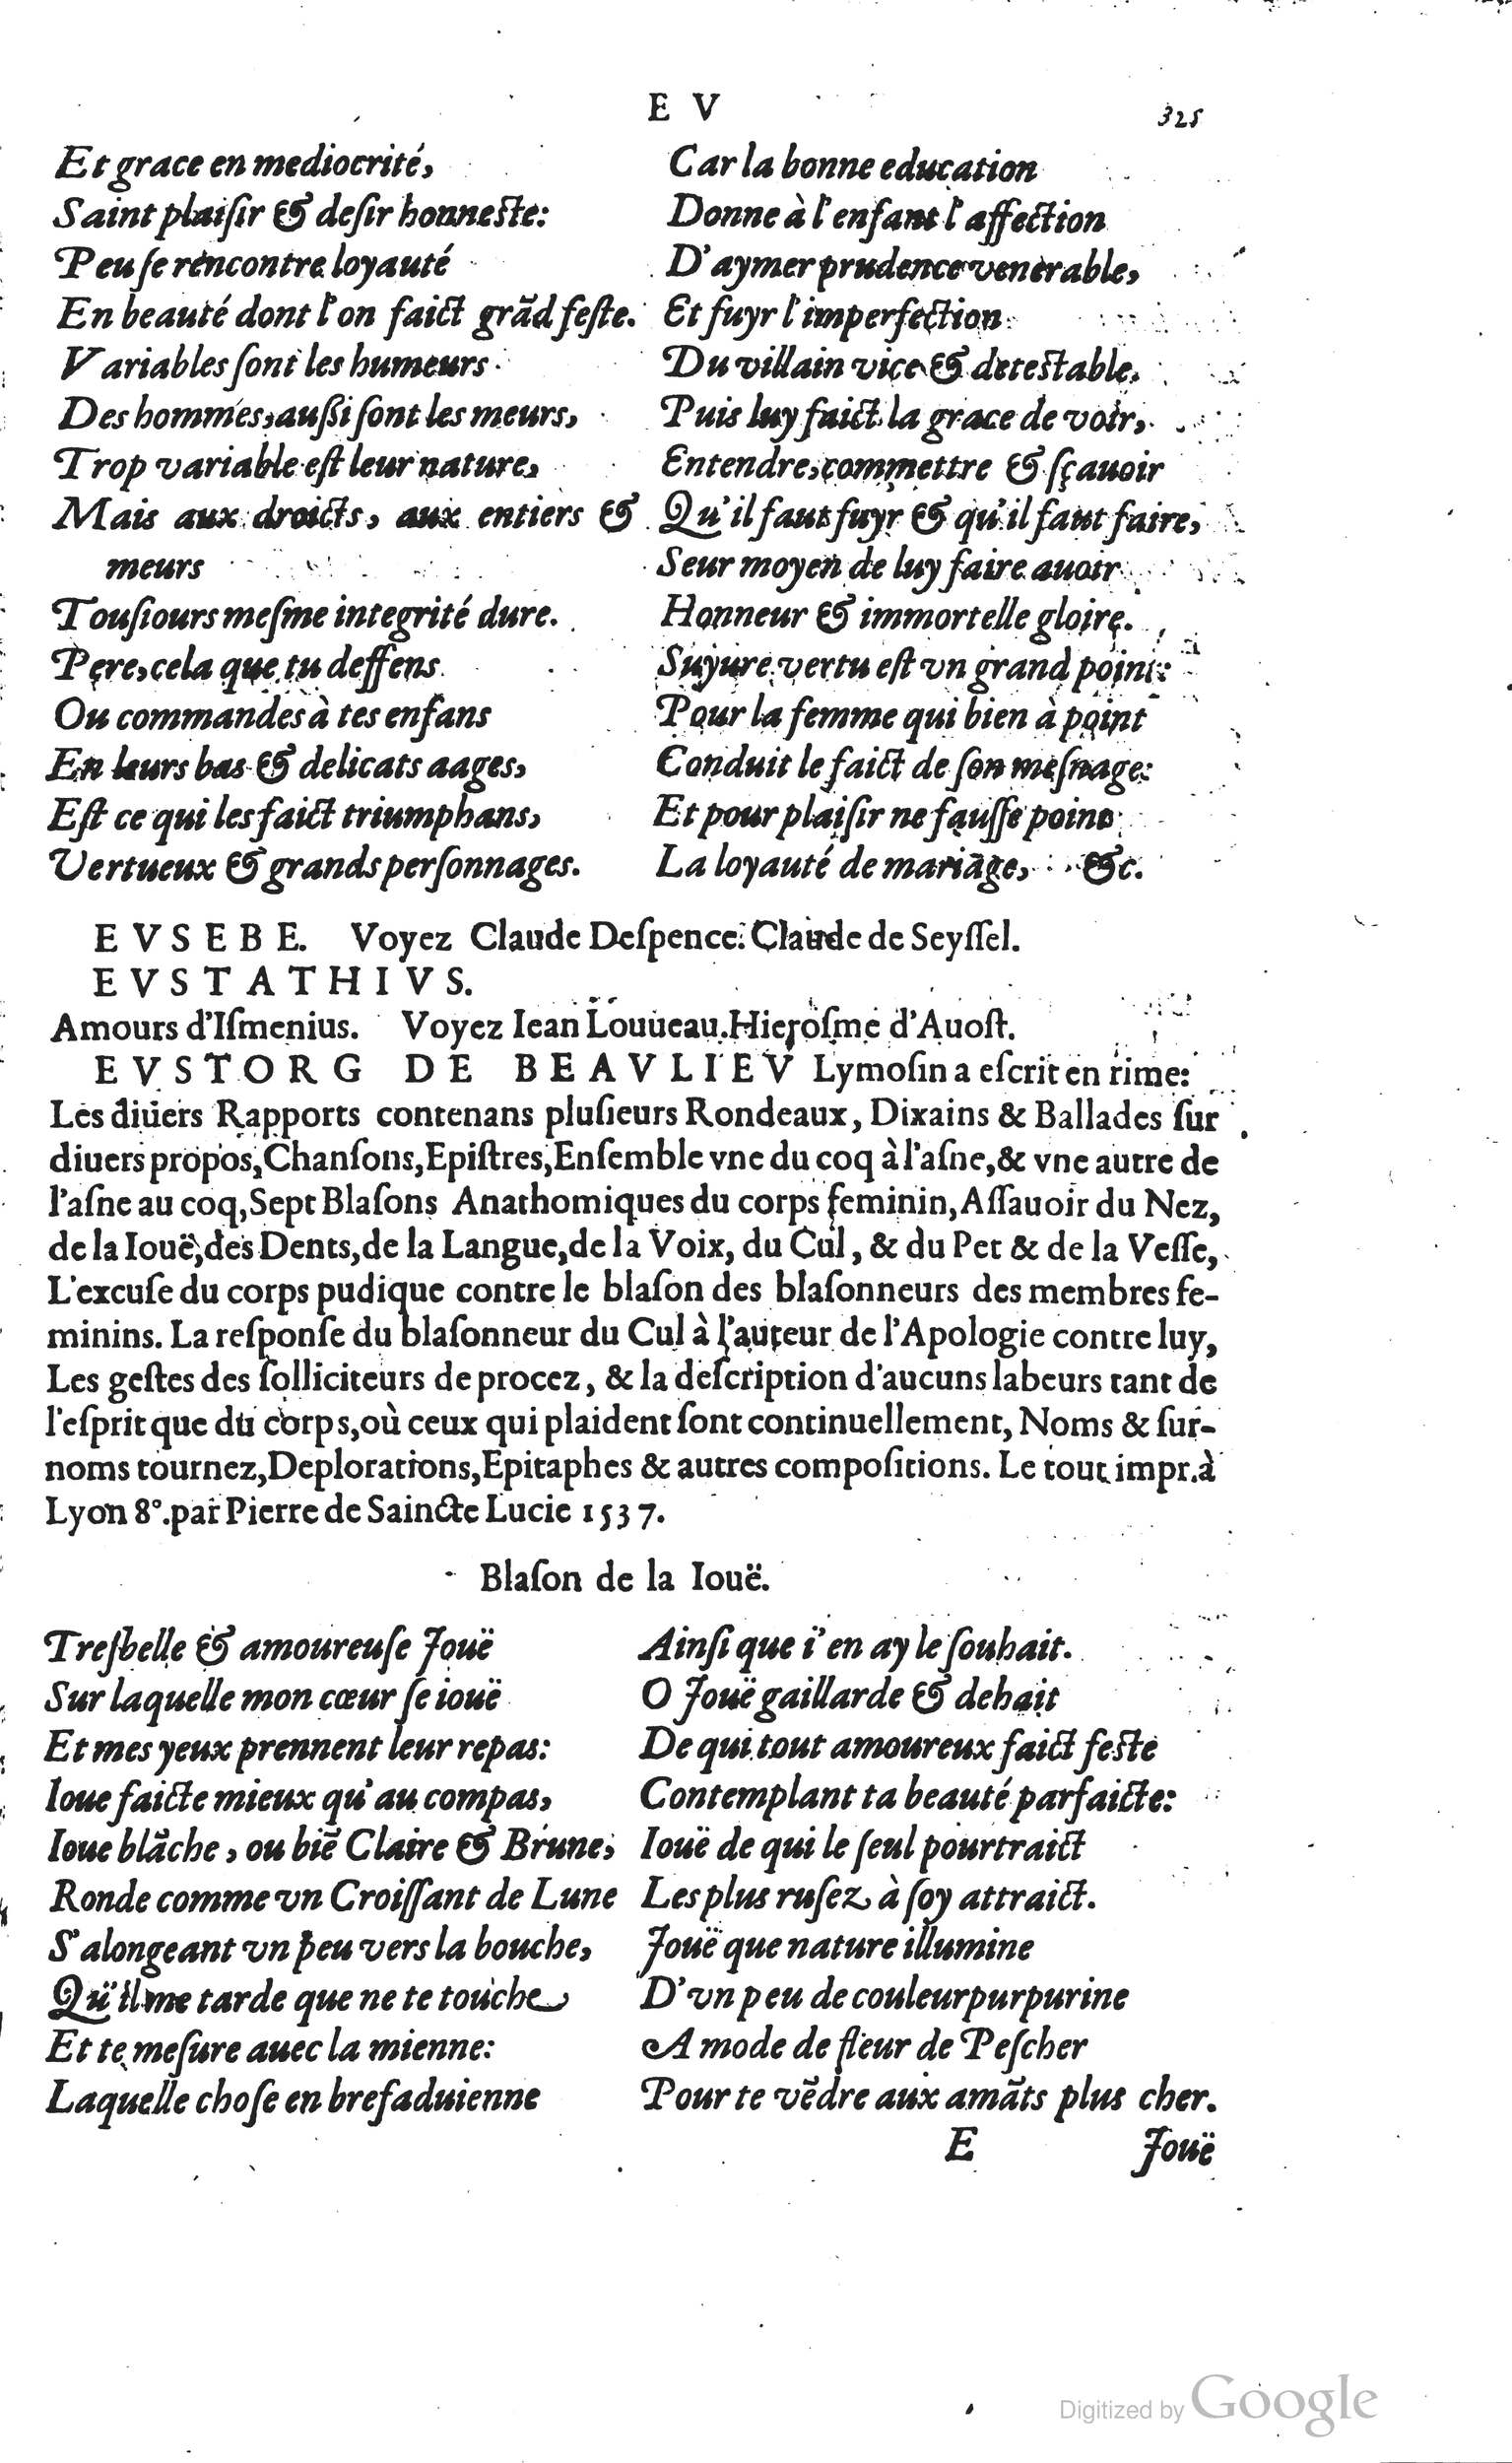 E V 325
Et grace en mediocrité,
Saint plaiſir & deſir honneſte:
Peu ſe rencontre loyauté
En beauté dont l'on faict grãd feſte.
Variables ſont les humeurs
Des hommes, auſsi ſont les meurs,
Trop variable eſt leur nature,
Mais aux droicts, aux entiers &
meurs
Touſiours meſme integrité dure.
Pere, cela que tu deffens
Ou commandes à tes enfans
En leurs bas & delicats aages,
Eſt ce qui les faict triumphans,
Vertueux & grands perſonnages.
Car la bonne education
Donne à l'enfant l'affection
D'aymer prudence venerable,
Et fuyr l'imperfection
Du villain vice & deteſtable.
Puis luy faict la grace de voir,
Entendre, commettre & ſçauoir
Qu'il faut fuyr & qu'il faut faire,
Seur moyen de luy faire auoir
Honneur & immortelle gloire.
Suyure vertu eſt vn grand point:
Pour la femme qui bien à point
Conduit le faict de ſon meſnage:
Et pour plaiſir ne fauſſe point
La loyauté de mariage, &c.
EVSEBE. Voyez Claude Deſpence. Claude de Seyſſel.
EVSTATHIVS.
Amours d'Iſmenius. Voyez Iean Louueau. Hieroſme d'Auoſt.
EVSTORG DE BEAVLIEV Lymoſin a eſcrit en rime:
Les diuers Rapports contenans pluſieurs Rondeaux, Dixains & Ballades ſur
diuers propos, Chanſons, Epiſtres, Enſemble vne du coq à l'aſne, & vne autre de
l'aſne au coq, Sept Blaſons Anathomiques du corps feminin, Aſſauoir du Nez,
de la Iouë, des Dents, de la Langue, de la Voix, du Cul, & du Pet & de la Veſſe,
L'excuſe du corps pudique contre le blaſon des blaſonneurs des membres fe-
minins. La reſponſe du blaſonneur du Cul à l'auteur de l'Apologie contre luy,
Les geſtes des ſolliciteurs de procez, & la deſcription d'aucuns labeurs tant de
l'eſprit que du corps, où ceux qui plaident ſont continuellement, Noms & ſur-
noms tournez, Deplorations, Epitaphes & autres compoſitions. Le tout impr. à
Lyon 8°. par Pierre de Saincte Lucie 1537.
Blaſon de la Iouë.
Treſbelle & amoureuſe Jouë
Sur laquelle mon cœur ſe iouë
Et mes yeux prennent leur repas:
Ioue faicte mieux qu'au compas,
Ioue blãche, ou biẽ Claire & Brune,
Ronde comme vn Croiſſant de Lune
S'alongeant vn peu vers la bouche,
Qu'il me tarde que ne te touche
Et te meſure auec la mienne:
Laquelle choſe en bref aduienne
Ainſi que i'en ay le ſouhait.
O Jouë gaillarde & dehait
De qui tout amoureux faict feſte
Contemplant ta beauté parfaicte:
Iouë de qui le ſeul pourtraict
Les plus ruſez à ſoy attraict.
Jouë que nature illumine
D'vn peu de couleur purpurine
A mode de fleur de Peſcher
Pour te vẽdre aux amãts plus cher.
E Jouë
Digitized by Google